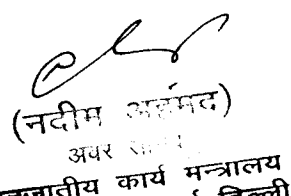 (नदीम अहमद)
अवर
जनजातीय कार्य मन्त्रालय
दिल्ली